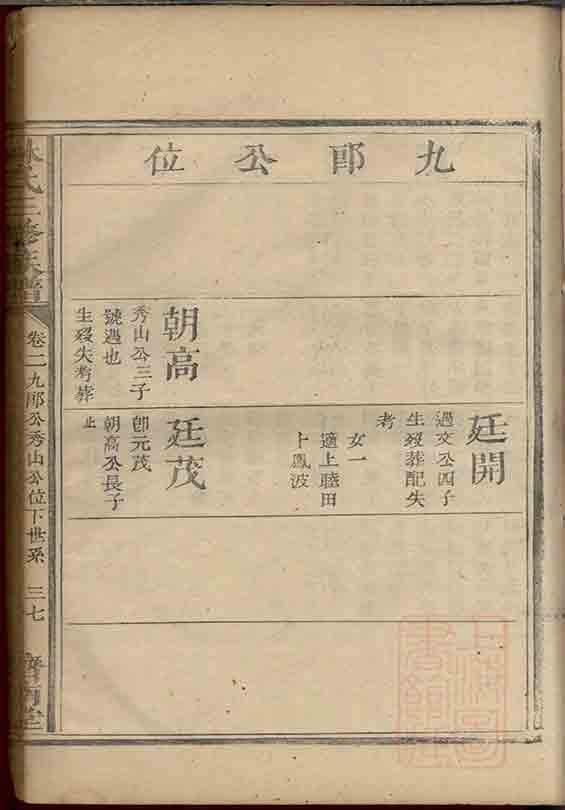 九郎公位
廷開
過文公四子
生歿葬配失
考
女一
適上睦田
卜鳳波
朝高
秀山公三子
號遇也
生歿失考葬
廷茂
卽元茂
朝高公長子
止
氏三修族譜
卷二九郎公秀山公位下世系
三七
堂
上海圖
書館藏